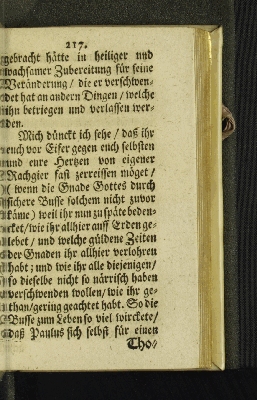 217.
gebracht hätte in heiliger und
wachsamer Zubereitung für seine
Veränderung / die er verschwen-
det hat an andern Dingen / welche
ihn betriegen und verlassen wer-
den.
Mich dünckt ich sehe / daß ihr
euch vor Eifer gegen euch selbsten
und eure Hertzen von eigener
Rachgier fast zerreissen möget /
( wenn die Gnade Gottes durch
sichere Busse solchem nicht zuvor
käme ) weil ihr nun zu späte beden-
cket / wie ihr allhier auff Erden ge-
lebet / und welche güldene Zeiten
der Gnaden ihr allhier verlohren
habt; und wie ihr alle diejenigen /
so dieselbe nicht so närrisch haben
verschwenden wollen / wie ihr ge-
than / gering geachtet habt. So die
Busse zum Leben so viel wirckete /
daß Paulus sich selbst für einen
Tho-